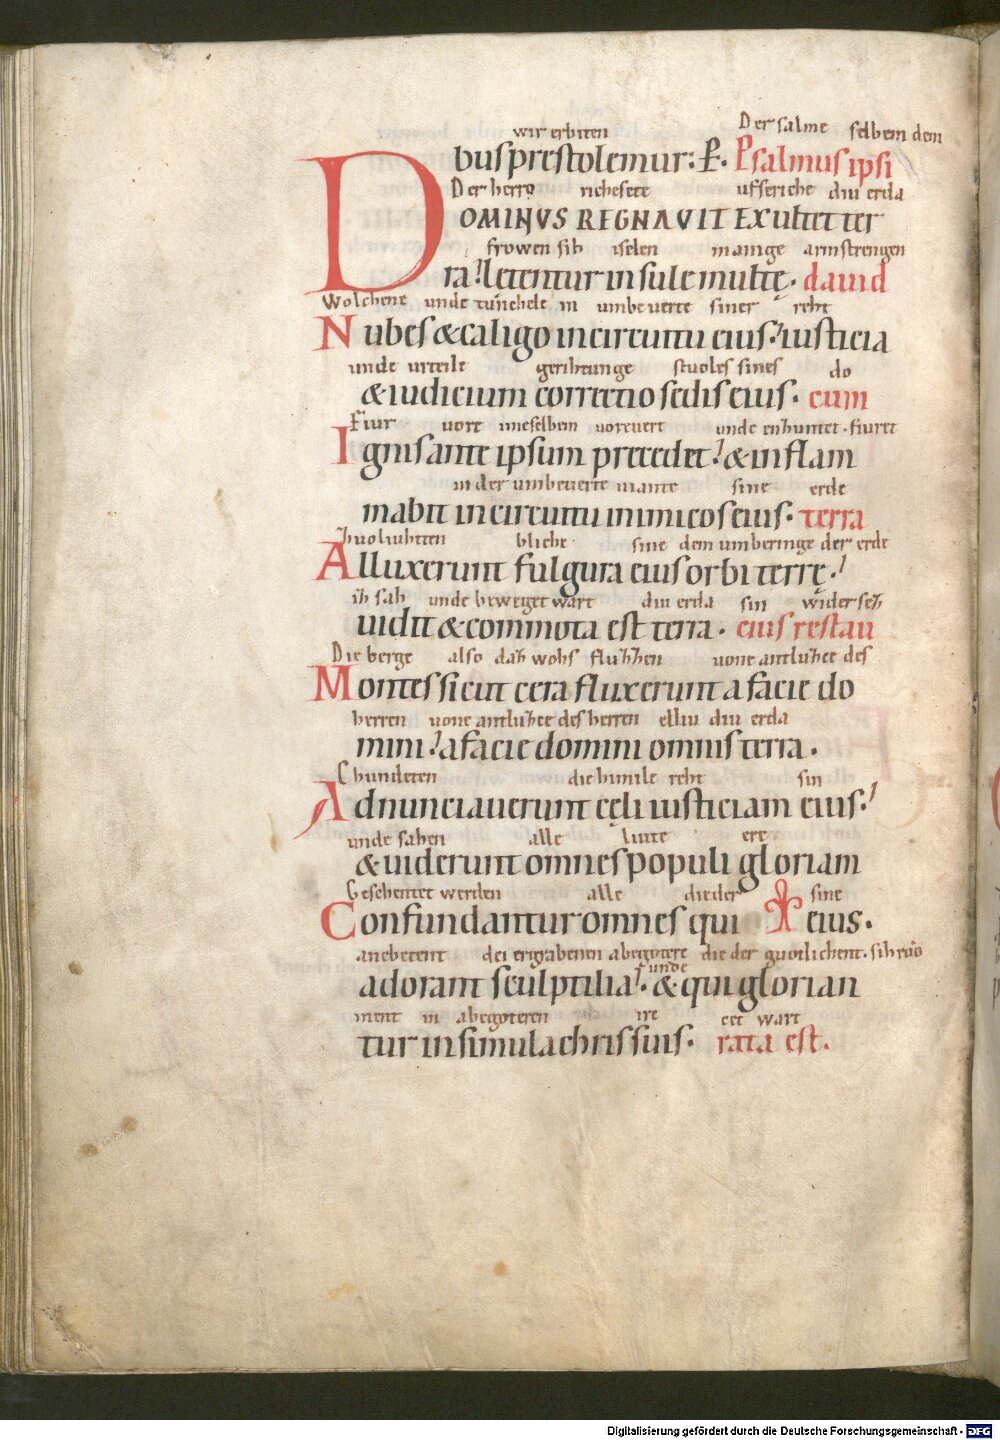 wir erbiten Der salme selbem dem
bus prestolemur: P. Psalmus ipsi
Der herro richesete ufseriche diu erda
DOMINUS REGNAUIT EXultet ter
frowen sih iselen manige armstrengen
ra? letentur insule multę. dauid
Wolchene unde tunchele in umbeuerte siner reht
Nubes & caligo in circuitu eius? iusticia
unde urteile gerihtunge stuoles sines do
& iudicium correctio sedis eius. cum
Fiur uore imeselbem uoreuert unde enzuntet. fiuret
Ignis ante ipsum precedet? & inflam
in der umbeuerte uiante sine erde
mabit in circuitu inimicos eius. terra
Zuoliuhtten bliche sine dem umberinge der erde
Alluxerunt fulgura eius orbi terrę?
ih sah unde beweget wart diu erda sin widersez
uidit & commota est terra. eius restau
Die berge also daz wohs fluzzen uone antluzee des
Montes sicut cera fluxerunt a facie do
herren uone antluzee des herren elliu diu erda
mini? a facie domini omnis terra.
Chundeten die himile reht sin
Adnunciauerunt cęli iusticiam eius?
unde sahen alle liute ere
& uiderunt omnes populi gloriam
Geschentet werden alle dieder sine
Confundantur omnes qui eius.
anebetent dei ergrabenen abegotere die der guotlichent. sih ruo
unde
adorant sculptilia? & qui glorian
ment in abegoteren ire eet wart
tur in simulachris suis. rata est.
Digitalisierung gefördert durch die Deutsche Forschungsgemeinschaft - DFG